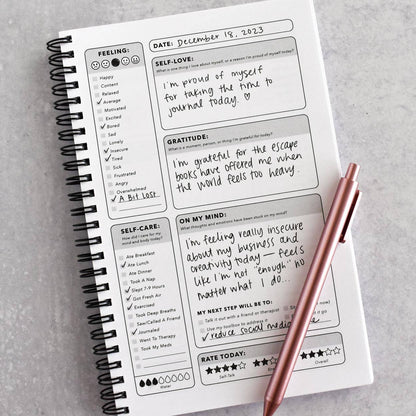 FEELING:
Happy
Content
Relaxed
Average
Motivated
Excited
Bored
Sad
Lonely
Insecure
Tired
Sick
Frustrated
Angry
Overwhelmed
A Bit Lost
SELF-CARE:
How did I care for my mind and body today?
Ate Breakfast
Ate Lunch
Ate Dinner
Took A Nap
Slept 7-9 Hours
Got Fresh Air
Exercised
Took Deep Breaths
Saw/Called A Friend
Journaled
Went To Therapy
Took My Meds
Water
DATE: December 18, 2023
SELF-LOVE:
What is one thing I love about myself, or a reason I'm proud of myself today?
i'm proud of myself
for taking the time to
journal today. ♡
GRATITUDE:
What is a moment, person, or thing I'm grateful for today?
i'm grateful for the escape
books have offered me when
the world feels too heavy.
ON MY MIND:
What thoughts and emotions have been stuck on my mind?
i'm feeling really insecure
about my business and
creativity today — feels
like i'm not "enough" no
matter what I do...
MY NEXT STEP WILL BE TO:
Talk it out with a friend or therapist
Use my toolbox to address it
reduce social
RATE TODAY:
Self-Talk
Overall